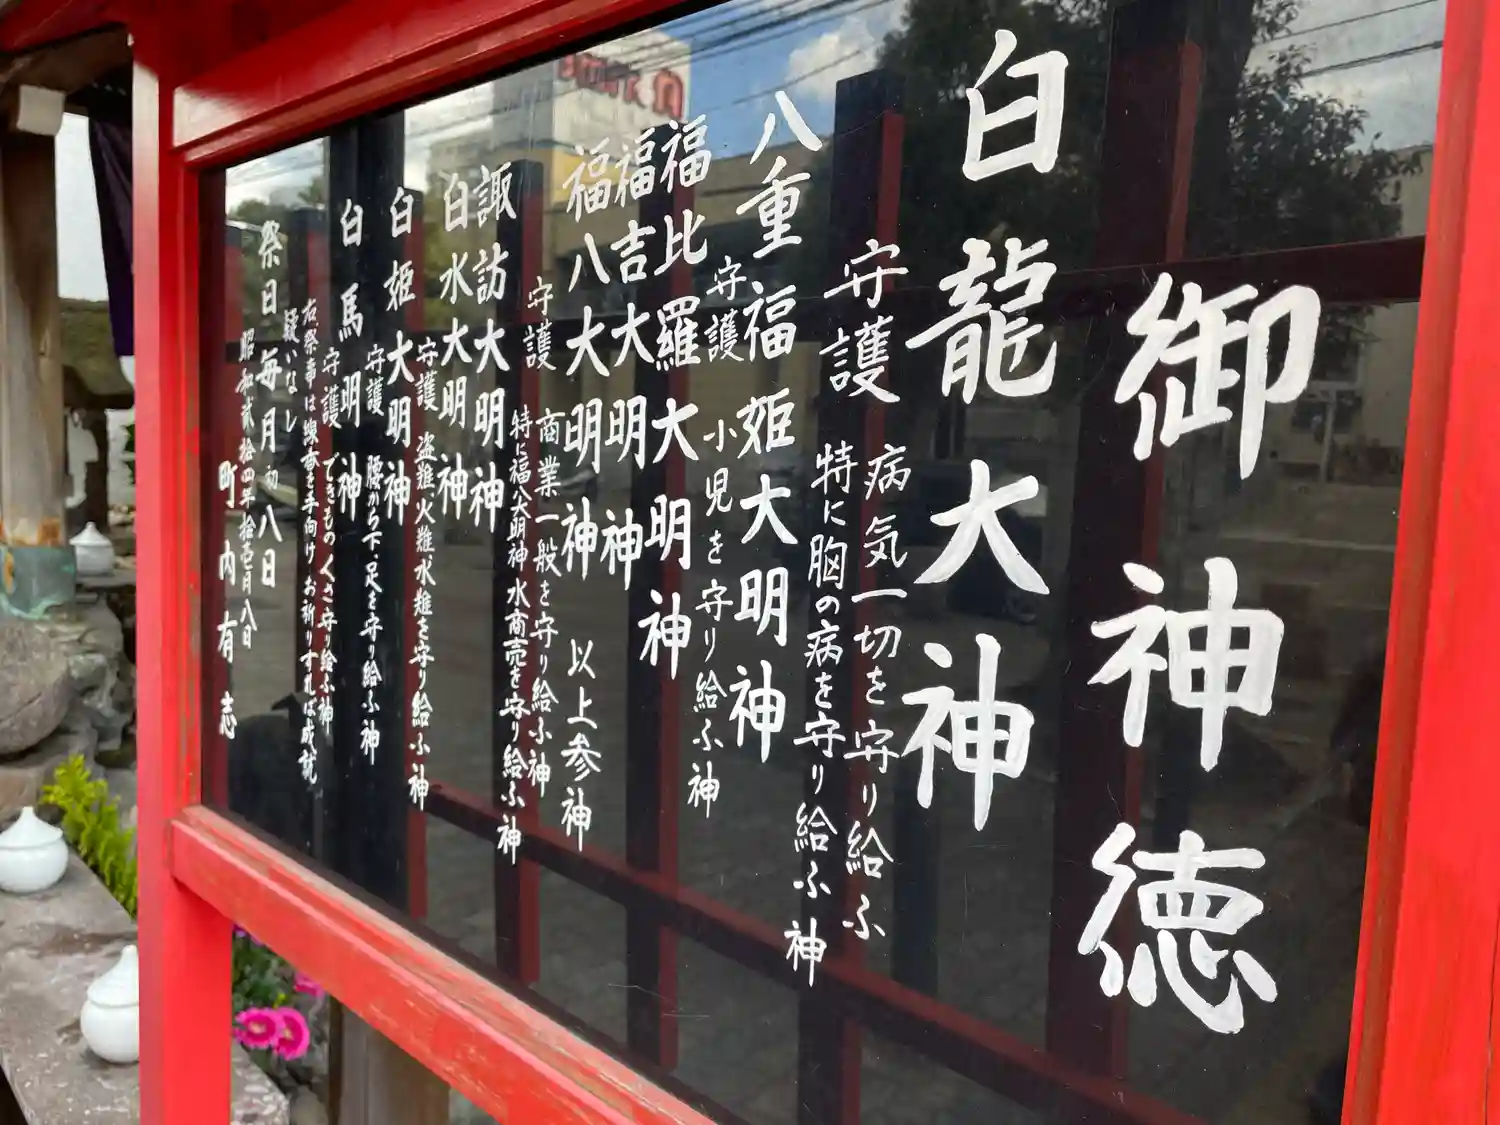 御神徳
白龍大神
守護 病気一切を守り給ふ
特に胸の病を守り給ふ神
八重福姫大明神
守護 小児を守り給ふ神
福比羅大明神
福吉大明神
福八大明神 以上参神
守護 商業一般を守り給ふ神
特に福八大明神水商売を守り給ふ神
諏訪大明神
白水大明神
守護 盗難、火難水難を守り給ふ神
白姫大明神
守護 腰から下、足を守り給ふ神
白馬明神
守護 できもの くさ守り給ふ神
右祭事は線香を手向けお祈りすれば成就
疑いなし
祭日毎月初八日
昭和貳拾四年拾壱月八日
町内有志